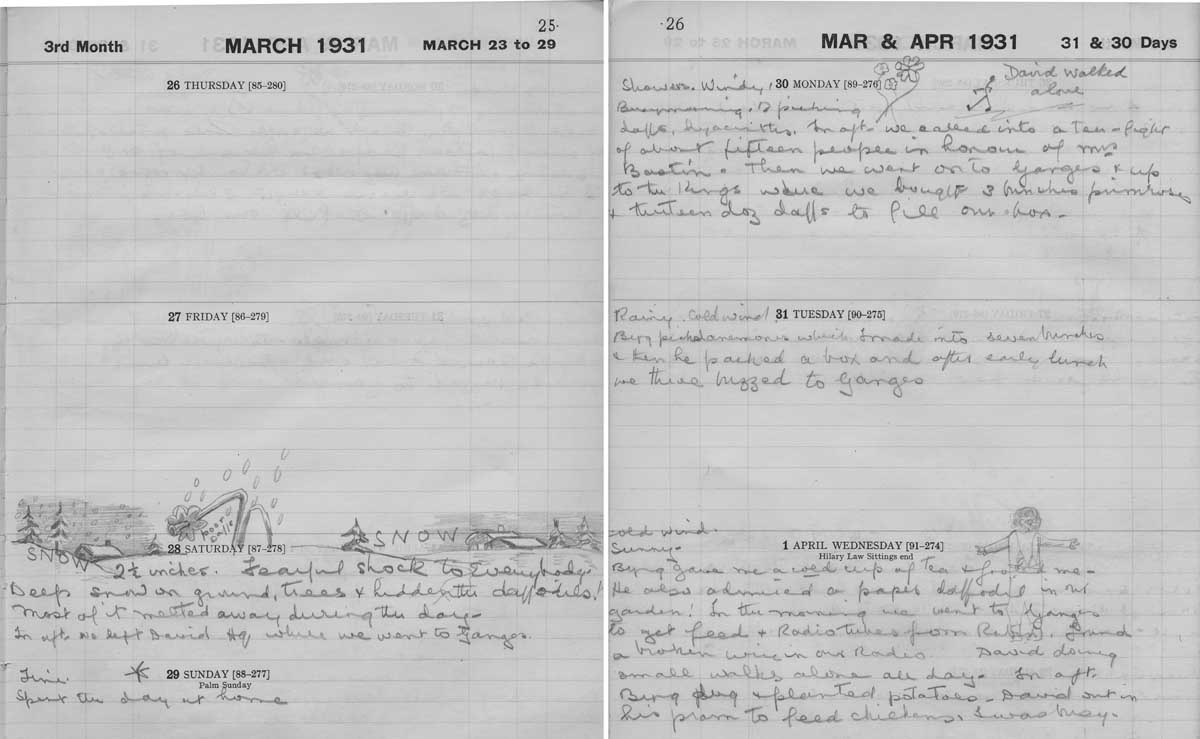 25.
3rd Month MARCH 1931 MARCH 23 to 29
26 THURSDAY [85–280]
27 FRIDAY [86–279]
poor
Daffs
SNOW SNOW
28 SATURDAY [87–278]
2½ inches. Fearful shock to Everybody.
Deep snow on ground, trees & hidden the daffodils!
Most of it melted away during the day—
In aft. we left David Hq where we went to Ganges.
29 SUNDAY [88–277]
Palm Sunday
Fine.
Spent the day at home
26
MAR & APR 1931 31 & 30 Days
David walked
alone
Showers. Windy. 30 MONDAY [89–276]
Busy morning. picking
daffs, hyacinths. In aft— we called into a tea-fight
of about fifteen people in honour of Mrs
Bastin. Then we went on to Ganges & up
to the Kings where we bought 3 bunches primroses
& thirteen doz daffs to fill our box—
Rainy. Cold wind. 31 TUESDAY [90–275]
Byng picked anemones which I made into seven bunches
& then he packed a box and after early lunch
we three buzzed to Ganges
Cold wind.
Sunny— 1 APRIL WEDNESDAY [91–274]
Hilary Law Sittings end
Byng gave me a cold cup of tea & fooled me—
He also admired a paper daffodil in our
garden! In the morning we went to Ganges
to get feed & Radio tubes from . Found
a broken wire in our Radio. David doing
small walks alone all day. In aft.
Byng dug & planted potatoes— David out in
his pram to feed chickens. I was busy.